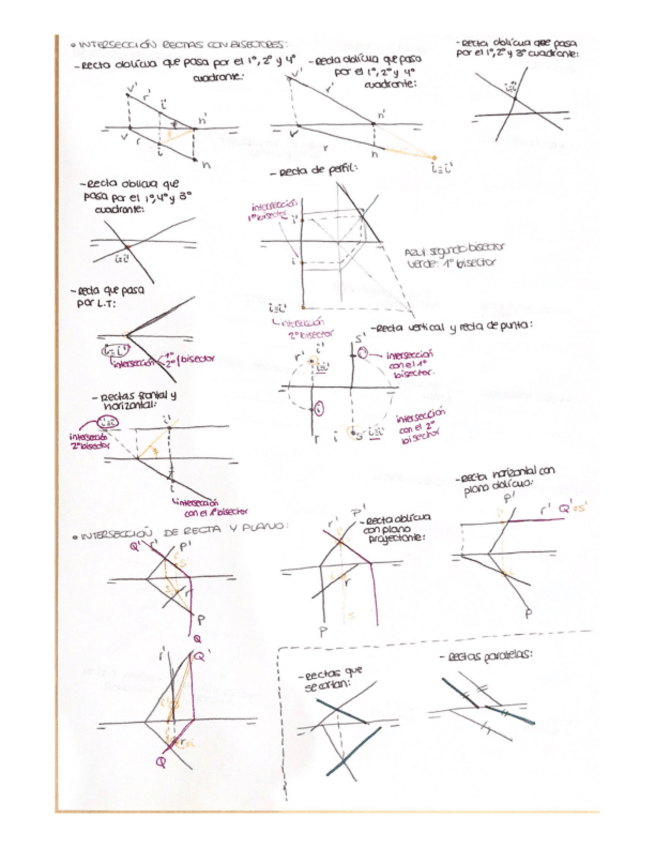 • INTERSECCIÓN RECTAS CON BISECTORES:
- Recta oblicua que pasa por el 1º, 2º y 4º
cuadrante:
v'
r'
i'
n'
v
r
i
n
- Recta oblicua que pasa
por el 1º, 2º y 4º
cuadrante:
v'
r'
n'
v
r
n
i≡i'
- Recta oblicua que pasa
por el 1º, 2º y 3º cuadrante:
i≡i'
- Recta oblicua que
pasa por el 1º, 4º y 3º
cuadrante:
i≡i'
- Recta de perfil:
intersección
1º bisector
i'
i
i≡i'
intersección
2º bisector
Azul segundo bisector
verde: 1º bisector
- Recta que pasa
por L.T:
i≡i'
intersección
1º
2º
bisector
- Recta vertical y recta de punta:
r'
i'
i≡i'
i
r
s'
intersección
con el 1º
bisector.
s
i≡i'
intersección
con el 2º
bisector
- Rectas frontal y
horizontal:
i≡i'
i'
intersección
2º bisector
i
intersección
con el 1º bisector
• INTERSECCIÓN DE RECTA Y PLANO:
Q'
r'
P'
s
r
P
Q
r'
P'
- Recta oblicua
con plano
proyectante:
r
s
P
- Recta horizontal con
plano oblicuo:
P'
r'
Q'≡s'
P
r'
Q'
Q
- Rectas que
se cortan:
- Rectas paralelas: